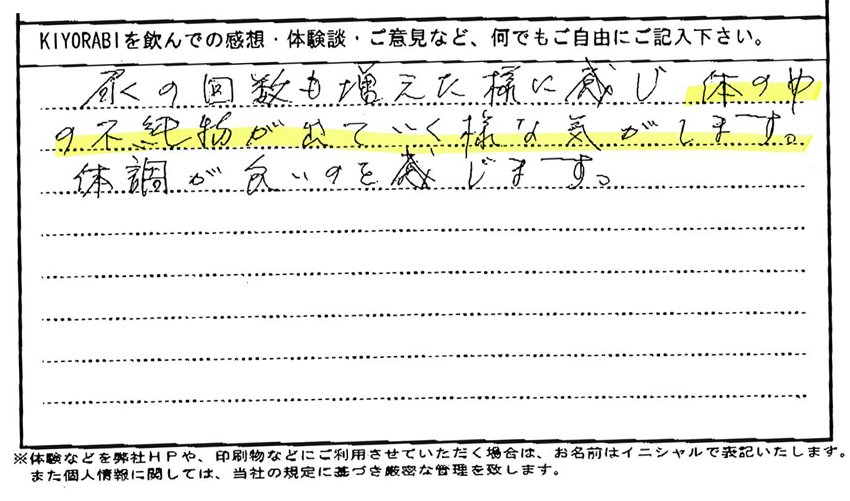 KIYORABIを飲んでの感想・体験談・ご意見など、何でもご自由にご記入下さい。
の回数も増えた様に感じ 体の中
の不純物が出ていく様な気がします。
体調が良いのを感じます。
※体験などを弊社HPや、印刷物などにご利用させていただく場合は、お名前はイニシャルで表記いたします。
また個人情報に関しては、当社の規定に基づき厳密な管理を致します。